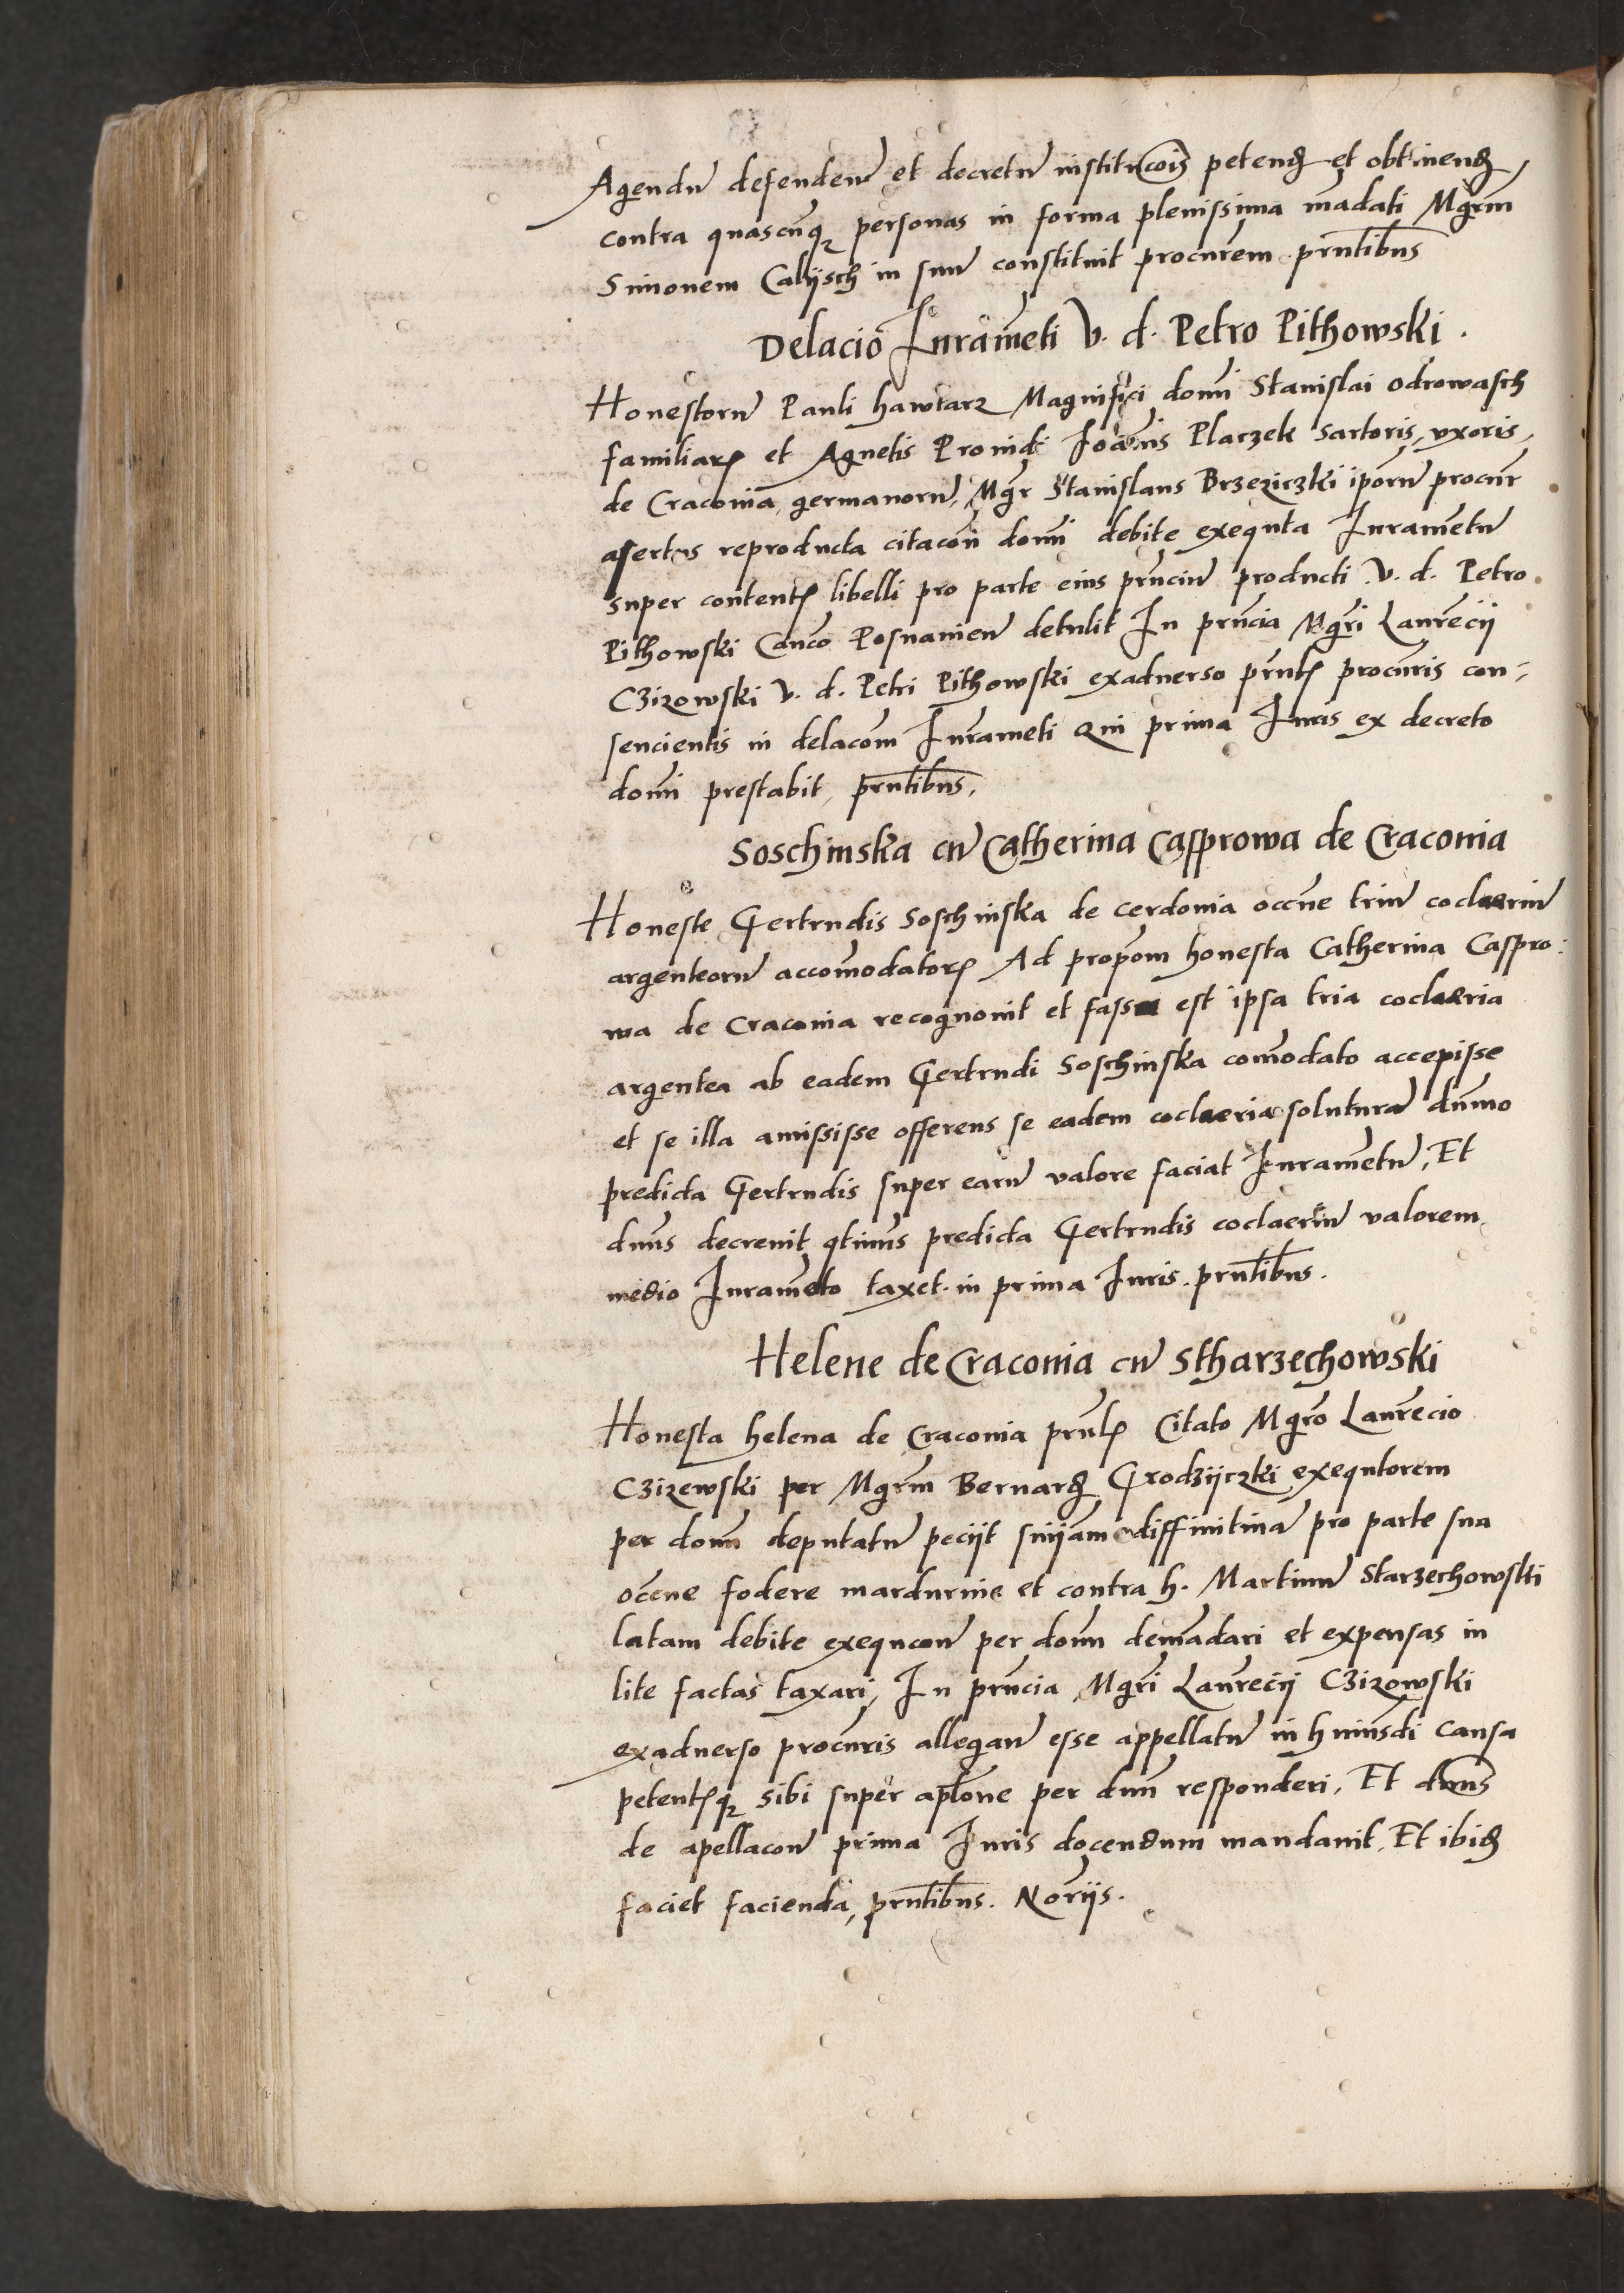 Agendũ defendenũ et decretũ institucois̃ petend et obtinend
contra quascũq personas in forma plenissima mãdati Mgr̃m
Simonem Calijsch in suũ constituit procur̃em prñtibus
Delacio Iuramẽti V. d. Petro Pithowski.
Honestorũ Pauli hawtarz Magnifici dom̃i Stanislai odrowasch
familiar et Agnetis Prouidi Ioãnis Placzek sartoris, vxoris,
de Craconia, germanorũ, Mgr̃ Stanislaus Brzeziczki ip̃orũ procur̃
assertus reproducta citacon̄ dom̃i debite exequta Iuramẽtũ
super content libelli pro parte eius prñciũ producti V. d. Petro
Pithowski Cañco Posnanieñ detulit In prñcia Mgr̃i Laurẽcij
Czizowski V. d. Petri Pithowski exaduerso prñt procur̃is con-
sencientis in delacom̃ Iuramẽti Qui prima Iuris ex decreto
dom̃i prestabit, prñtibus,
Soschinska cũ Catherina Casprowa de Craconia
Honeste Gertrudis Soschinska de cerdonia occ̃ne triũ coclaeriũ
argenteorũ accom̃odator Ad propom̃ honesta Catherina Caspro:
wa de Craconia recognouit et fassa est ipsa tria coclaeria
argentea ab eadem Gertrudi Soschinska com̃odato accepisse
et se illa amississe offerens se eadem coclaeria soluturã dum̃o
predicta Gertrudis super earũ valore faciat Iuramẽtũ, Et
dñus decreuit q̃tinus predicta Gertrudis coclaeriũ valorem
medio Iuramẽto taxet in prima Iuris. prñtibus.
Helene de Craconia cũ Stharzechowski
Honesta helena de Craconia prñt Citato Mgr̃o Laurẽcio
Czizewski per Mgr̃m Bernard Grodzijczki exequtorem
per dom̃ deputatũ pecijt snijam̃ diffinitiuã pro parte sua
occ̃ne fodere mardurine et contra h. Martinũ Starzechowski
latam debite exequcoñ per dom̃ demãdari et expensas in
lite factas taxari, In prñcia Mgr̃i Laurẽcij Czizowski
exaduerso procur̃is allegañ esse appellatũ in huiusdi causa
petentq sibi super apl̃one per dñm responderi, Et dñus
de apellacoñ prima Iuris docendum mandauit, Et ibid
faciet facienda, prñtibus. Nor̃ijs.